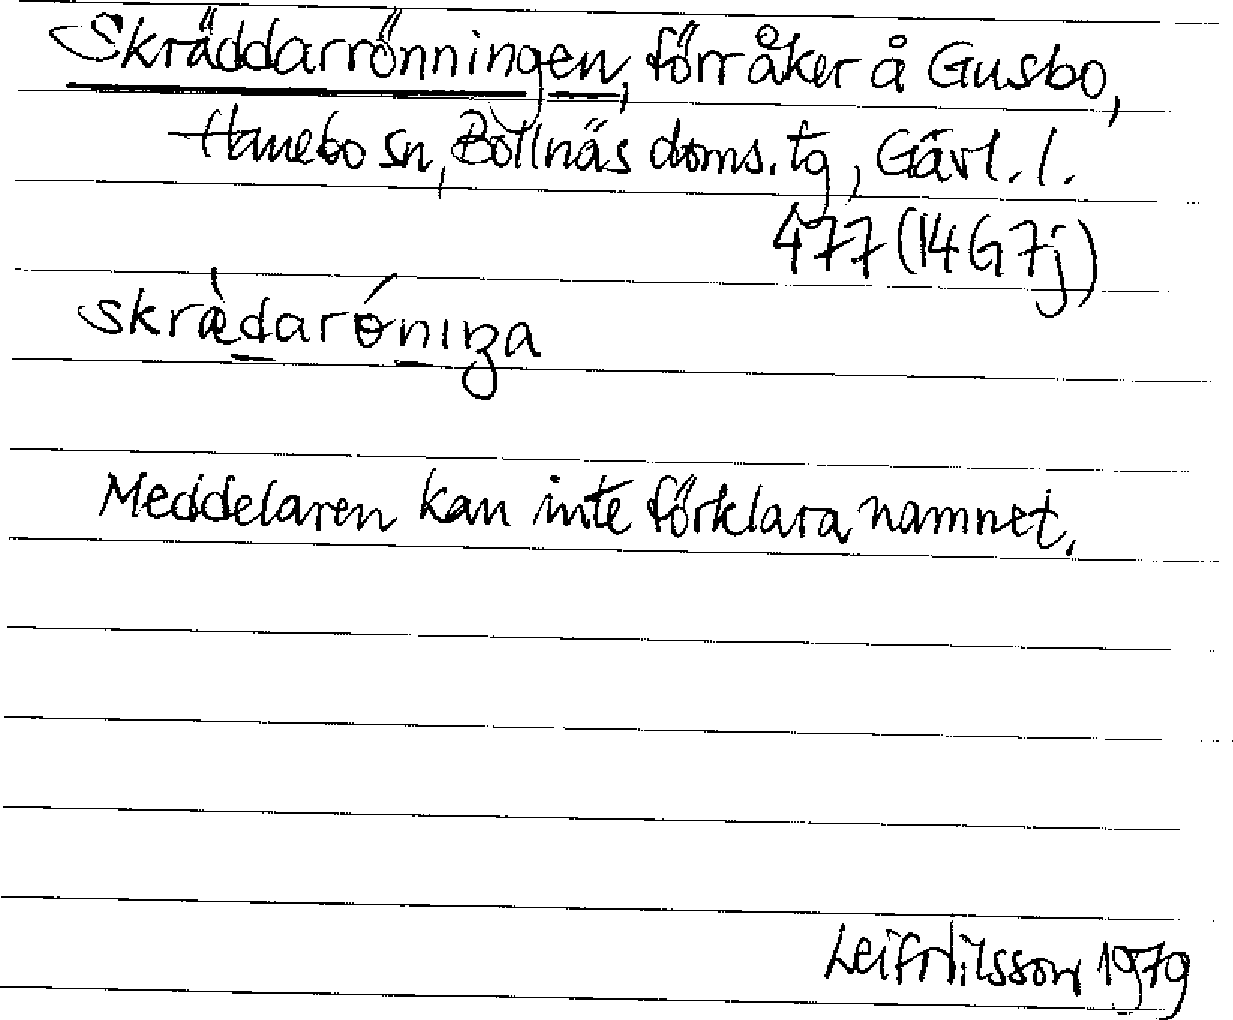 Skräddarrönningen, förr åker å Gusbo,
Hanebo sn, Bollnäs doms. tg, Gävl. l.
477 (14G7j)
skrǽdarǿniŋa
Meddelaren kan inte förklara namnet.
Leif Nilsson 1979